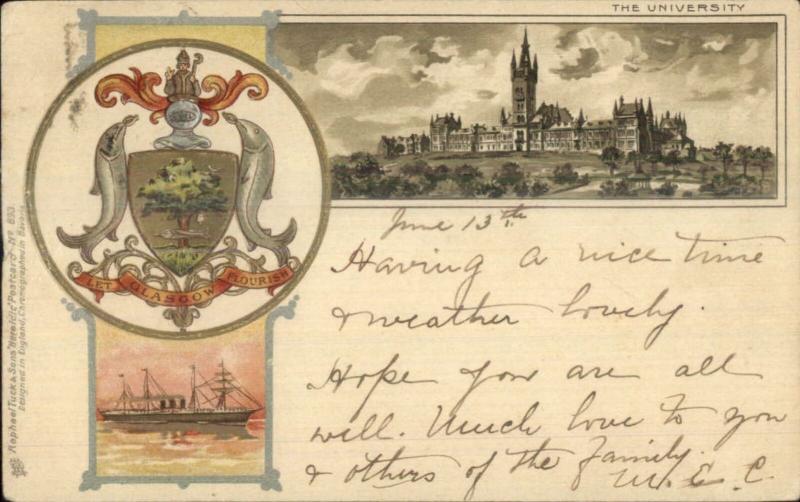 THE UNIVERSITY
LET GLASGOW FLOURISH
Raphael Tuck & Sons' "Heraldic" Postcard - Nº 893.
Designed in England, Chromographed in Bavaria.
June 13th
Having a nice time
& weather lovely.
Hope you are all
well. Much love to you
& others of the family.
M. E. C.